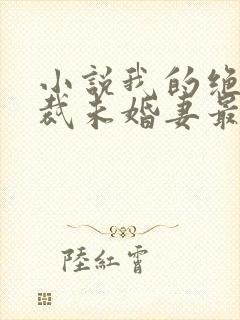 小説我的絶
裁未婚妻最
陸紅霄